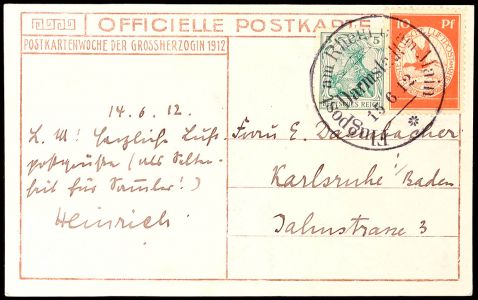 OFFICIELLE POSTKARTE
POSTKARTENWOCHE DER GROSSHERZOGIN 1912
5
10 Pf
Flugpost am Rhein u. am Main
Darmstadt
13 6 12
DEUTSCHES REICH
14. 6. 12.
L. M! Herzliche Luft-
postgrüße (als Selten-
heit für Sammler!)
Heinrich
Frau E.
Karlsruhe / Baden
3